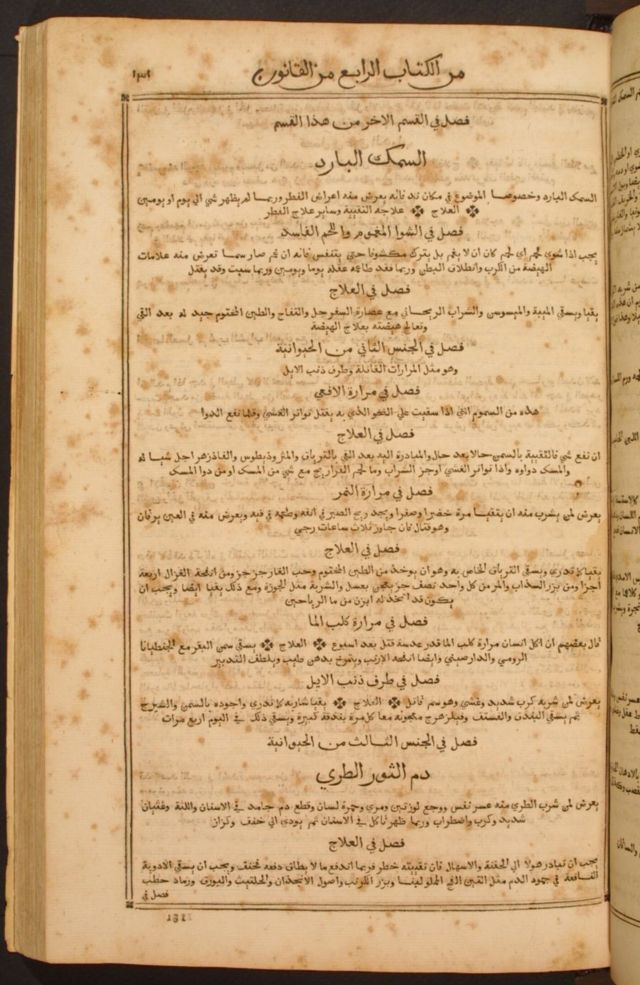 من الكتاب الرابع من القانون
١٣١
فصل في القسم الاخر من هذا القسم
السمك البارد
السمك البارد وخصوصا الموضوع في مكان ند فانه يعرض منه اعراض الفطر وربما لم يظهر شي الى يوم او يومين
العلاج علاجه التنقية وساير علاج الفطر
فصل في الشوا المغموم واللحم الفاسد
يجب اذا شوي لحم اي لحم كان ان لا يغم بل يترك مكشوفا حتى يتنفس فانه ان غم صار سما تعرض منه علامات
الهيضة من الكرب وانطلاق البطن وربما فقد طاعمه عقله يوما ويومين وربما سبت وقد يقتل
فصل في العلاج
يقيا ويسقي الميبة والميسوسن والشراب الريحاني مع عصارة السفرجل والتفاح والطين المختوم جيد له بعد القي
وتعالج هيضته بعلاج الهيضة
فصل في الجنس الثاني من الحيوانية
وهو مثل المرارات القاتلة وطرف ذنب الايل
فصل في مرارة الافعي
هذه من السموم التي اذا سقيت على النحو الذي به يقتل تواتر الغشي وقلما نفع الدوا
فصل في العلاج
ان نفع شي فالتقية بالسمن حالا بعد حال والمبادرة اليه بعد القي بالترياق والمثروذيطوس والفاذزهر اجل شيا له
والمسك دواوه واذا تواتر الغشي اوجر الشراب وما لحم الفراريج مع شي من المسك او من دوا المسك
فصل في مرارة النمر
يعرض لمن يشرب منه ان يتقيا مرة خضرا وصفرا ويجد ريح الصبر في انفه وطعمه في فيه ويعرض منه في العين يرقان
وهو قتال فان جاوز ثلاث ساعات رجي
فصل في العلاج
يقيا كما تدري ويسقي الترياق الخاص به وهو ان يوخذ من الطين المختوم وحب الغار جز جز ومن انفحة الغزال اربعة
اجزا ومن بزر السذاب والمر من كل واحد نصف جز يعجن بعسل والشربة مثل الجوزة ومع ذلك يقيا ايضا ويجب ان
يكون قد اتخذ له ابزن من ما الرياحين
فصل في مرارة كلب الما
قال بعضهم ان اكل انسان مرارة كلب الما قدر عدسة قتل بعد اسبوع العلاج يسقي سمن البقر مع الجنطيانا
الرومي والدارصيني وايضا انفحة الارنب ويتمرخ بدهن طيب ويلطف التدبير
فصل في طرف ذنب الايل
يعرض لمن شربه كرب شديد وغشي وهو سم قاتل العلاج يقيا شاربه كما تدري واجوده بالسمن والشيرج
ثم يسقي البندق والفستق وفيلزهرج معجونة معا كل مرة بندقة كبيرة ويسقي ذلك في اليوم اربع مرات
فصل في الجنس الثالث من الحيوانية
دم الثور الطري
يعرض لمن شرب الطري منه عسر نفس ووجع لوزتين ومري وحمرة لسان وقطع دم جامد في الاسنان واللثة وغثيان
شديد وكرب واضطراب وربما ظهر تاكل في الاسنان ثم يودي الى خنف وكزاز
فصل في العلاج
يجب ان تبادر هولا الى الحقنة والاسهال فان تقيته خطر فربما اندفع ما لا يطاق دفعه فخنف ويجب ان يسقي الادوية
النافعة في جمود الدم مثل التين الفج المملو لبنا وبزر الكرنب واصول الانجدان والحلتيت والبورق ورماد حطب
فصل في